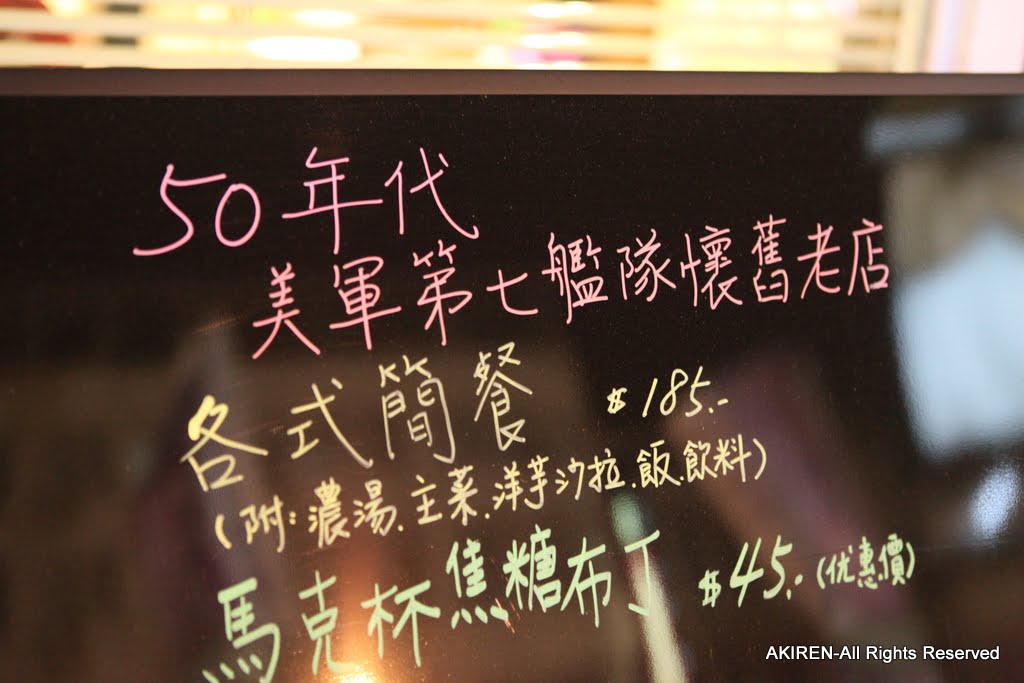 50年代
美軍第七艦隊懷舊老店
各式簡餐 $185.-
(附:濃湯.主菜.洋芋沙拉.飯.飲料)
馬克杯焦糖布丁 $45.(优惠價)
AKIREN-All Rights Reserved